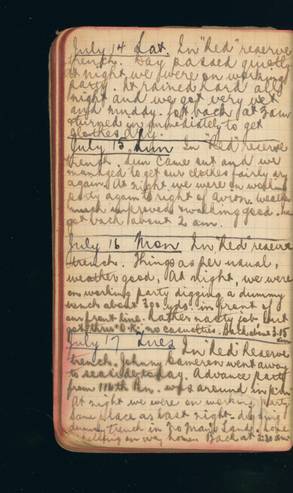 July 14 Sat. In "Red" reserve
trench. Day passed quietly
at night we were on working
party. It rained hard all
night and we got very wet
and muddy. Got back at 3 am
turned in immediately to get
clothes dry.
July 15 Sun In "Red" reserve
trench. Sun came out and we
managed to get our clothes fairly dry
again. At night we were on working
party again to right of Avion. Weather
much improved & working good. We
got back about 2 am.
July 16 Mon In "Red" reserve
trench. Things as per usual,
weather good. At night, we were
on working party digging a dummy
trench about 300 yds. in front of
our front line. Rather nasty job but
got thru' O.K., no casualties. Back about 3.15
July 17 Tues In "Red" Reserve
trench. Johnny Cameron went away
to seaside today. Advance party
from 116th Bn. was around in p.m.
At night we were on working party
same place as last night - digging
dummy trench in No Man's Land. Some
shelling on way home. Back at 2:30 am